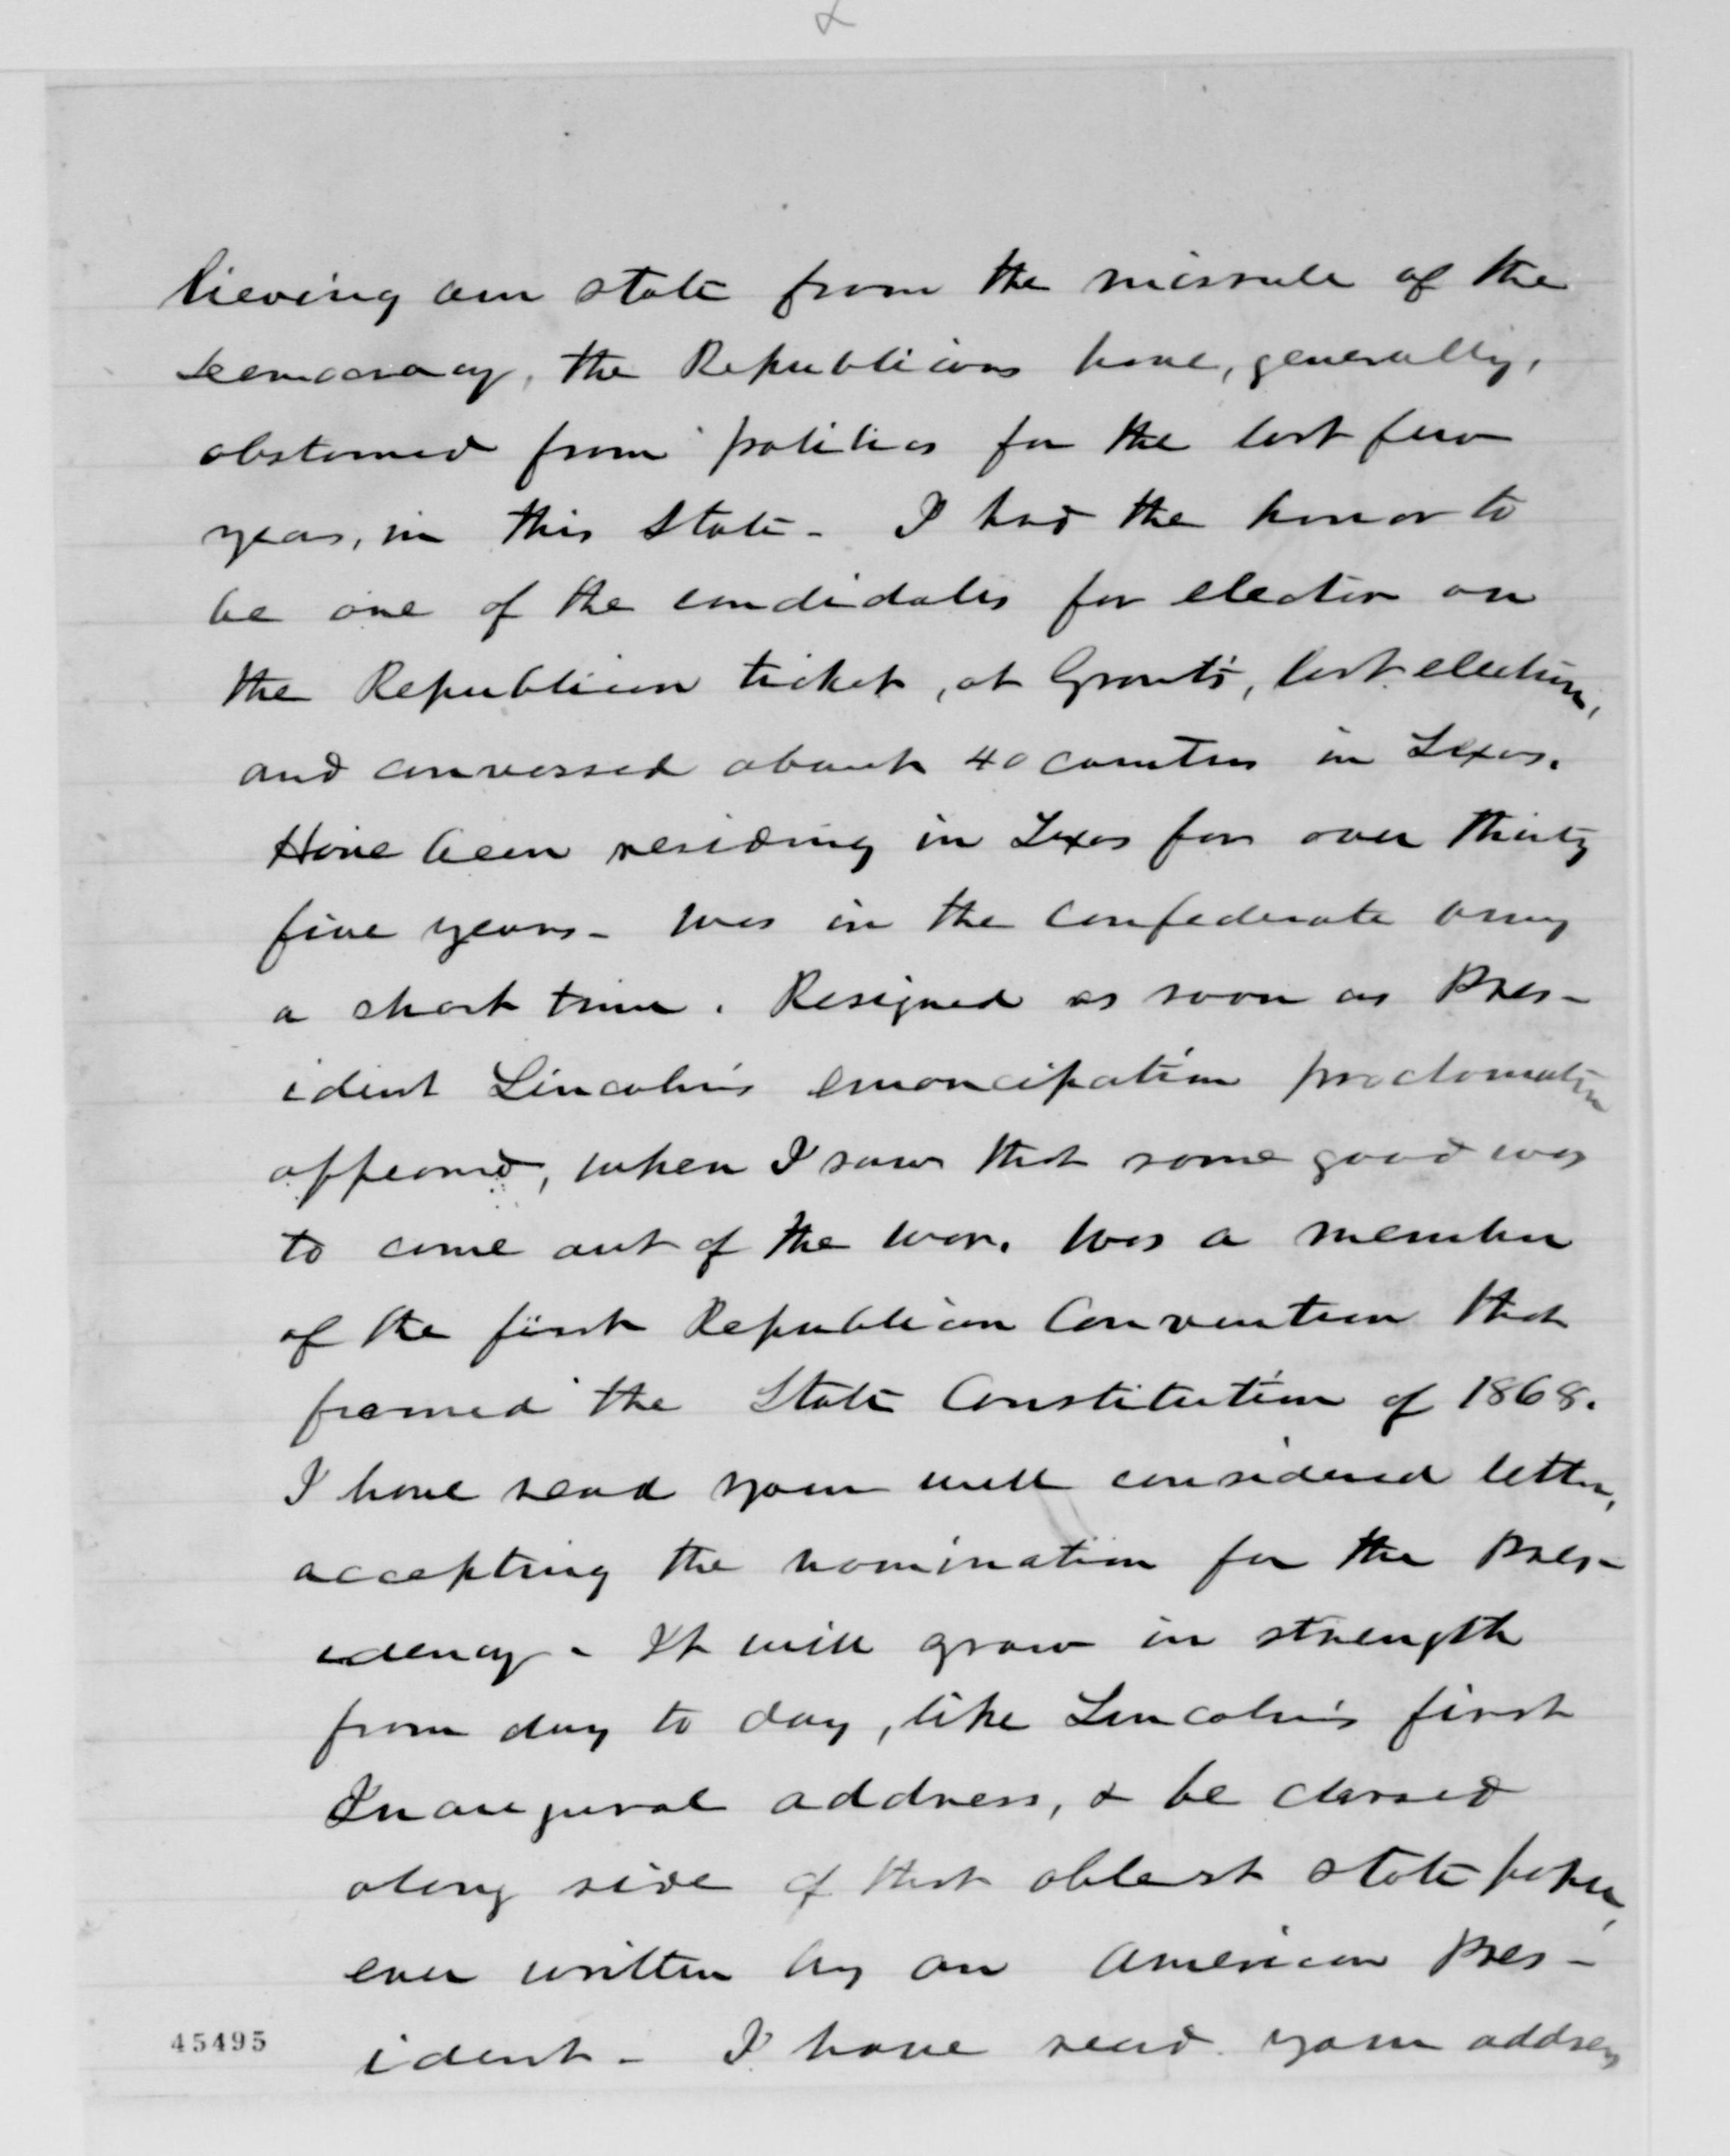 lieving our state from the misrule of the
democracy, the Republicans have, generally,
abstained from politics for the last few
years, in this State - I had the honor to
be one of the candidates for elector on
the Republican ticket, at Grant's, last election,
and canvassed about 40 counties in Texas.
Have been residing in Texas for over thirty
five years - Was in the Confederate army
a short time. Resigned as soon as Pres-
ident Lincoln's emancipation proclamation
appeared, when I saw that some good was
to come out of the war. Was a member
of the first Republican Convention that
framed the State Constitution of 1868.
I have read your well considered letter,
accepting the nomination for the Pres-
idency - It will grow in strength
from day to day, like Lincoln's first
Inaugural address, & be classed
along side of that ablest state paper,
ever written by an American Pres-
ident - I have read your address
45495